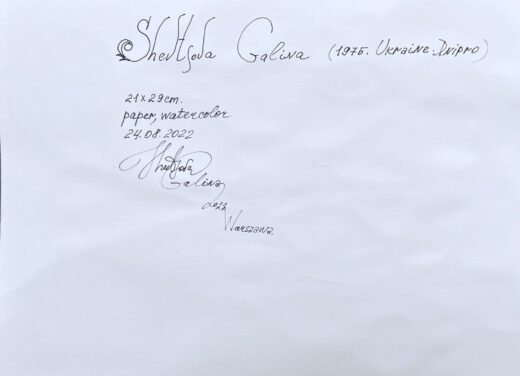 Shevtsova Galina (1975. Ukraine. Dnipro)
21x29cm.
paper, watercolor
24.08.2022
Shevtsova
Galina
2022
Warszawa.